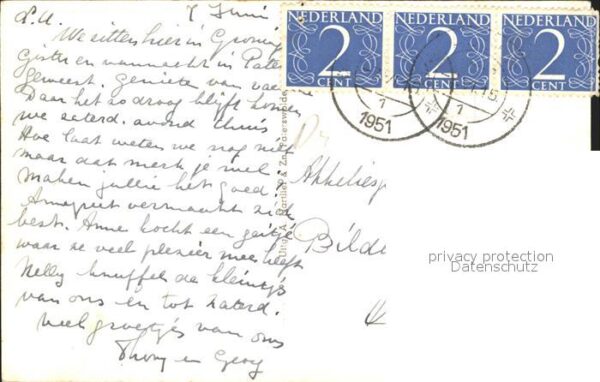 L.A.
7 Juni
We zitten hier in Groning
Gisteren vannacht in Pater
Geweest. Genieten van
Daar het zo droog blijft komen
we zaterd. avond thuis
Hoe laat weten we nog niet
maar dat merk je wel.
Maken jullie het goed?
Annegriet vermaakt zich
best. Anne kocht een geitje
waar ze veel plezier mee heeft
Nelly knuffel de kleintjes
van ons en tot zaterd.
Veel groetjes van ons
Thony en Gerry
NEDERLAND
2
CENT
NEDERLAND
2
CENT
NEDERLAND
2
CENT
1
1951
15.
1
1951
& Zn. Paterswolde
Akkeliesp
Bilde
privacy protection
Datenschutz